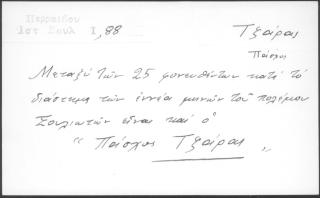 Περραιβού
Ιστ Σουλ Ι, 88
Τζαάρας
Πάσχος
Μεταξύ τῶν 25 φονευθέντων κατά τό
διάστημα τῶν ἐννέα μηνῶν τοῦ πολέμου
Σουλιωτῶν εἶναι καί ὁ
"Πάσχος Τζαάρας"